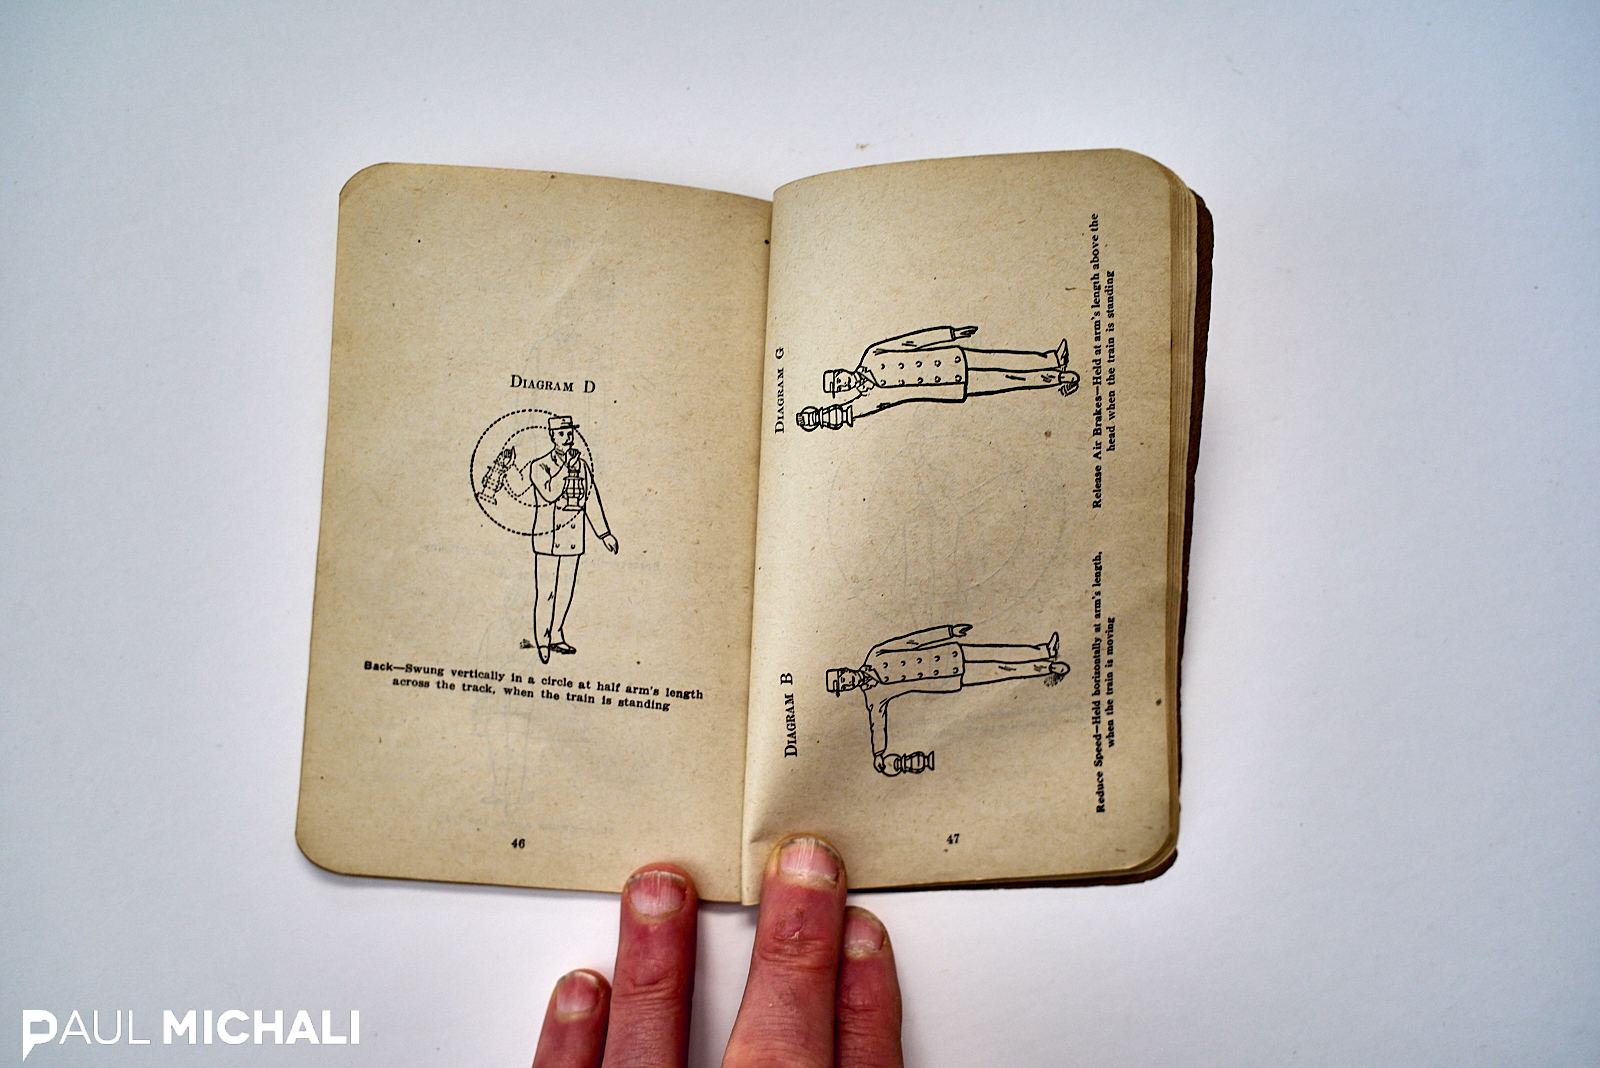 DIAGRAM D
Back—Swung vertically in a circle at half arm's length
across the track, when the train is standing
46
DIAGRAM B
Reduce Speed—Held horizontally at arm's length,
when the train is moving
DIAGRAM G
Release Air Brakes—Held at arm's length above the
head when the train is standing
47
PAUL MICHALI